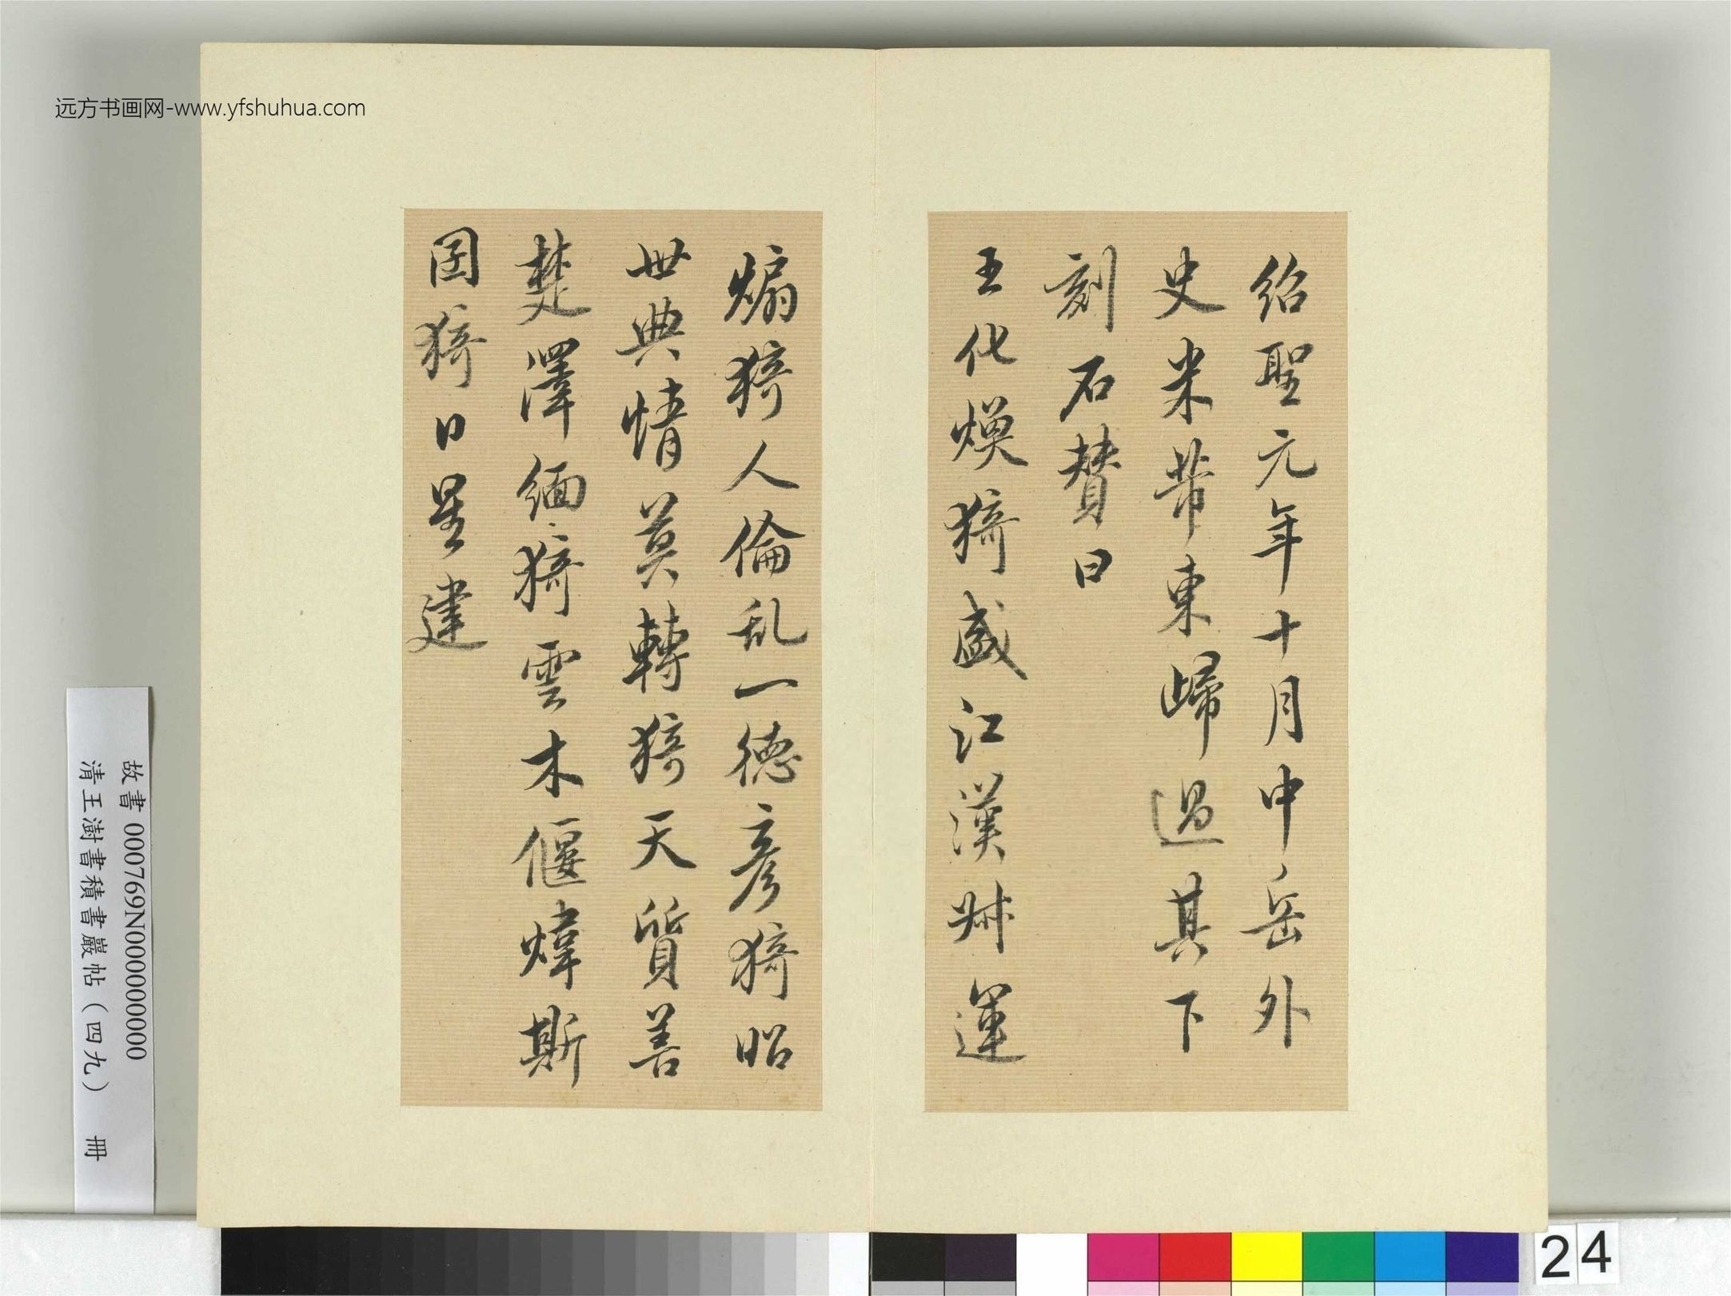 远方书画网-www.yfshuhua.com
绍聖元年十月中岳外
史米芾東歸過其下
刻石賛曰
王化煥猗盛江漢淋運
煽猗人倫乱一徳彦猗昭
世典情莫轉猗天質善
楚澤緬猗雲木偃煒斯
囙猗日星建
故書 000769N000000000
清王澍書積書巖帖（四九） 冊
24